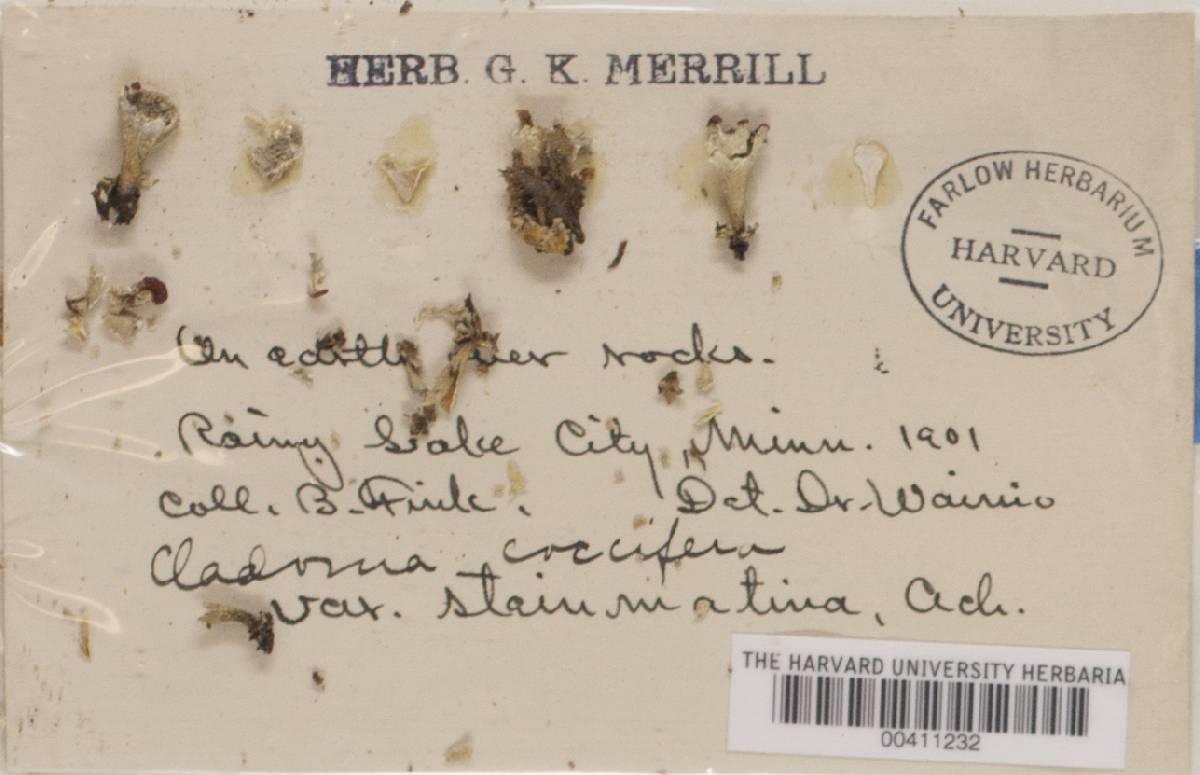 HERB. G. K. MERRILL
FARLOW HERBARIUM
HARVARD
UNIVERSITY
On earth over rocks.
Rainy Lake City, Minn. 1901
Coll. B. Fink. Det. Dr. Wainio
Cladonia coccifera
var. stemmatina, Ach.
THE HARVARD UNIVERSITY HERBARIA
00411232